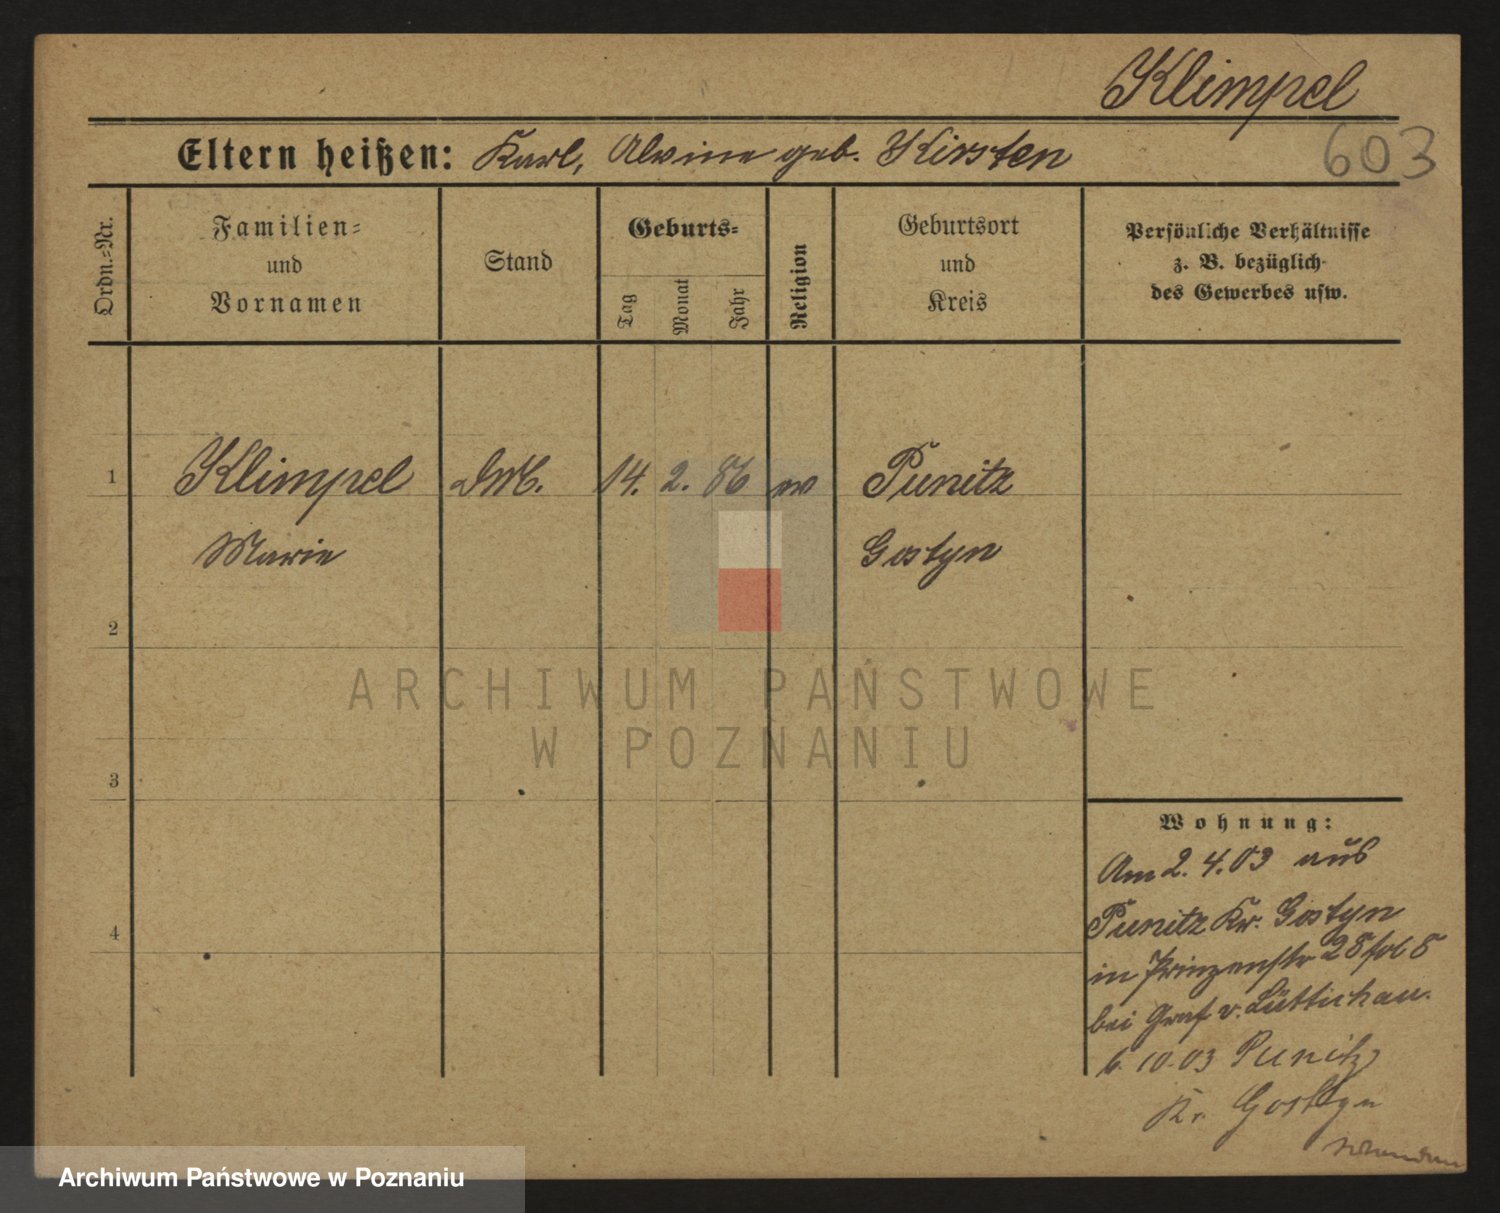 Klimpel
603
Eltern heißen: Karl, Alvine geb. Kirsten
Ordn.=Nr.
Familien=
und
Vornamen
Stand
Geburts=
Tag
Monat
Jahr
Religion
Geburtsort
und
Kreis
Persönliche Verhältnisse
z. B. bezüglich
des Gewerbes usw.
1 Klimpel DM. 14. 2. 86 ev Punitz
Marie Gostyn
2
3
4
ARCHIWUM PAŃSTWOWE
W POZNANIU
Wohnung:
Am 2. 4. 03 aus
Punitz Kr. Gostyn
in Prinzenstr 28
bei Graf v. Lüttichau.
6. 10. 03 Punitz
Kr. Gostyn
Archiwum Państwowe w Poznaniu